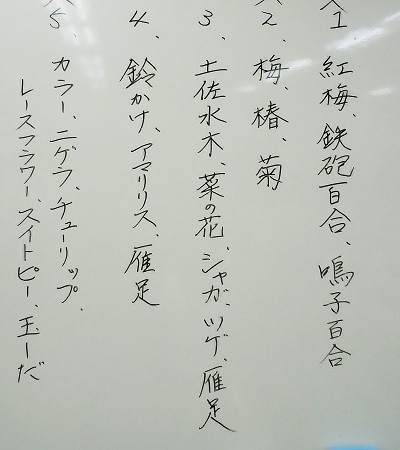 1、紅梅、鉄砲百合、鳴子百合
2、梅、椿、菊
3、土佐水木、菜の花、シャガ、ツゲ、雁足
4、鈴かけ、アマリリス、雁足
5、カラー、ニゲラ、チューリップ、
レースフラワー、スイトピー、玉しだ